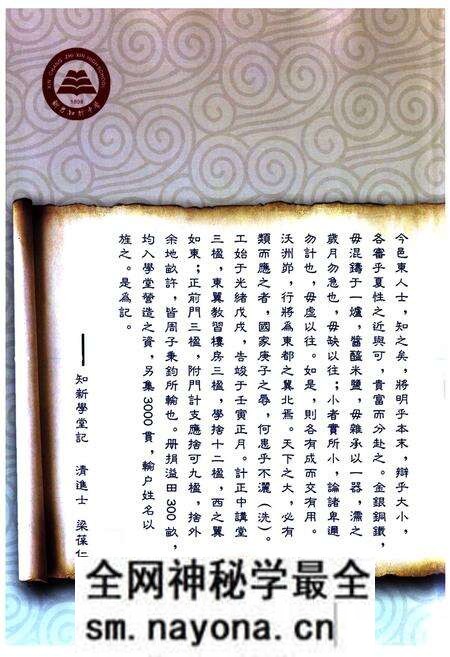 XIN CHANG ZHI XIN HIGH SCHOOL
1898
今邑東人士，知之矣，將明乎本末，辯乎大小，
各審乎夏性之近與可，貴富而分赴之。金銀銅鐵，
毋混鑄于一爐，醬醯米鹽，毋雜承以一器，濡之
歲月勿急也，毋缺以往；小者實所小，論諸卑邇
勿計也，毋虛以往。如是，則各有成而交有用。
沃洲峁，行將為東都之翼北焉。天下之大，必有
類而應之者，國家庚子之辱，何患乎不灑（洗）。
工始于光緒戊戌，告竣于壬寅正月。計正中講堂
三楹，東翼教習樓房三楹，學捨十二楹，西之翼
如東；正前門三楹，附門計支應捨可九楹，捨外
余地畝許，皆周子秉鈞所輸也。册捐溢田300畝，
均入學堂營造之資，另集3000貫，輸户姓名以
旌之。是為記。
知新學堂記 清進士 梁葆仁
全网神秘学最全
sm.nayona.cn